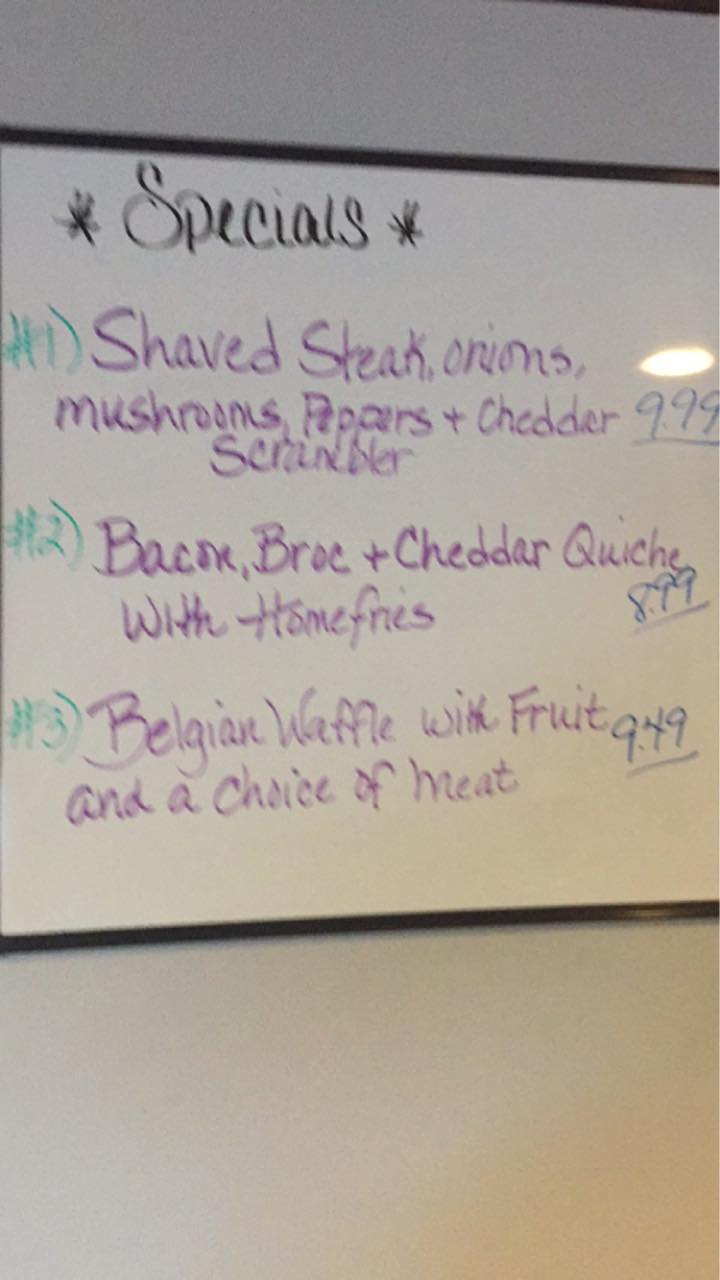 * Specials *
#1) Shaved Steak, onions,
mushrooms, Peppers + Cheddar 9.99
Scrambler
#2) Bacon, Broc + Cheddar Quiche
With Homefries 8.99
#3) Belgian Waffle with Fruit 9.49
and a choice of meat